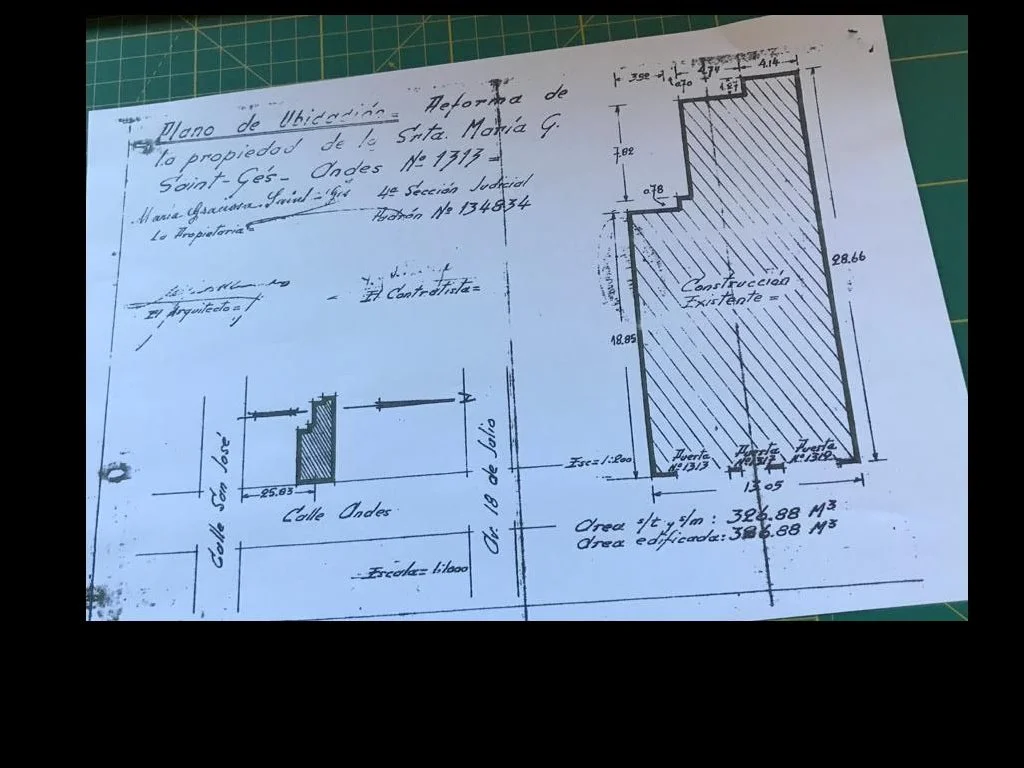 Plano de Ubicación = Reforma de
la propiedad de la Srta. María G.
Saint-Gés - Andes Nº 1313 =
María Graciosa Saint-Gés
4ª Sección Judicial
La Propietaria
Padrón Nº 134834
El Arquitecto =
El Contratista =
3.92
4.14
1.27
7.82
0.78
28.66
Construcción
Existente =
18.85
N
Calle San José
Av. 18 de Julio
25.83
Calle Andes
Escala = 1:1000
Esc = 1:200
Puerta
Nº 1313
Puerta
Nº 1317
Puerta
Nº 1319
13.05
Area s/t y s/m : 326.88 M³
Area edificada: 326.88 M³